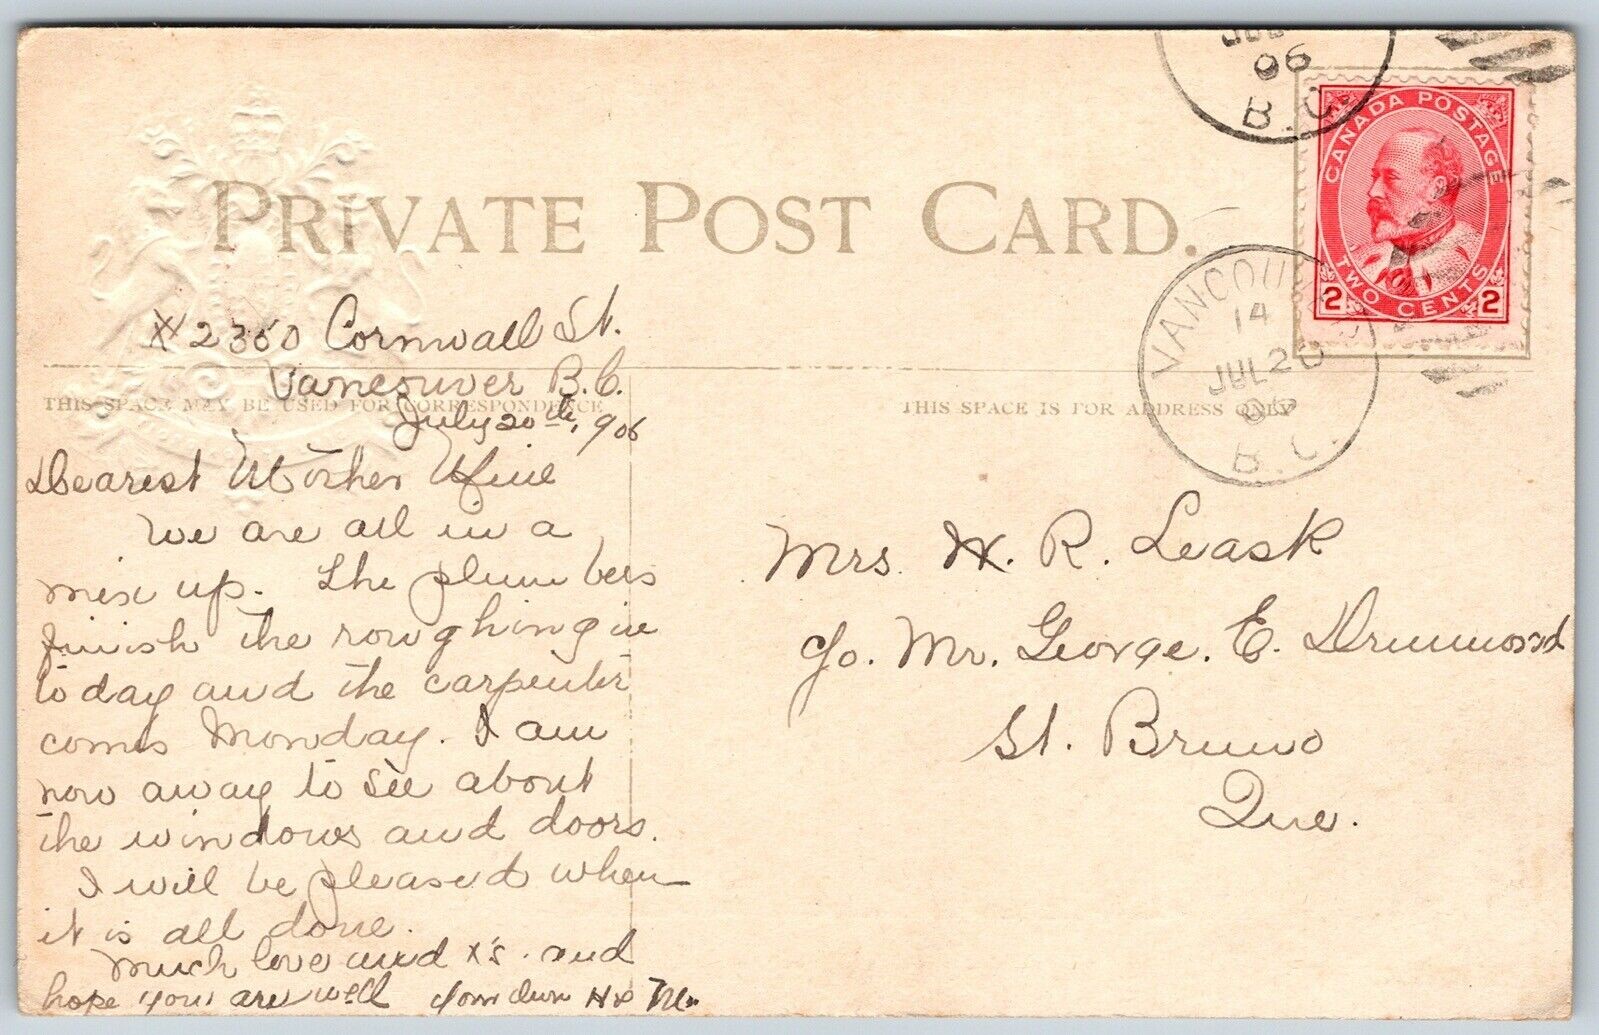 PRIVATE POST CARD.
THIS SPACE MAY BE USED FOR CORRESPONDENCE
THIS SPACE IS FOR ADDRESS ONLY
# 2350 Cornwall St.
Vancouver B.C.
July 20th, 906
Dearest Mother Mine
We are all in a
mix up. The plumbers
finish the roughing in
today and the carpenter
coms Monday. I am
now away to see about
the windows and doors.
I will be pleased when
it is all done.
Much love and x's. and
hope you are well
JUL
06
B.C.
VANCOUVER
14
JUL 20
06
B.C.
CANADA POSTAGE
2 TWO CENTS 2
Mrs. H. R. Leask
c/o. Mr. George. E. Drummond
St. Bruno
Que.